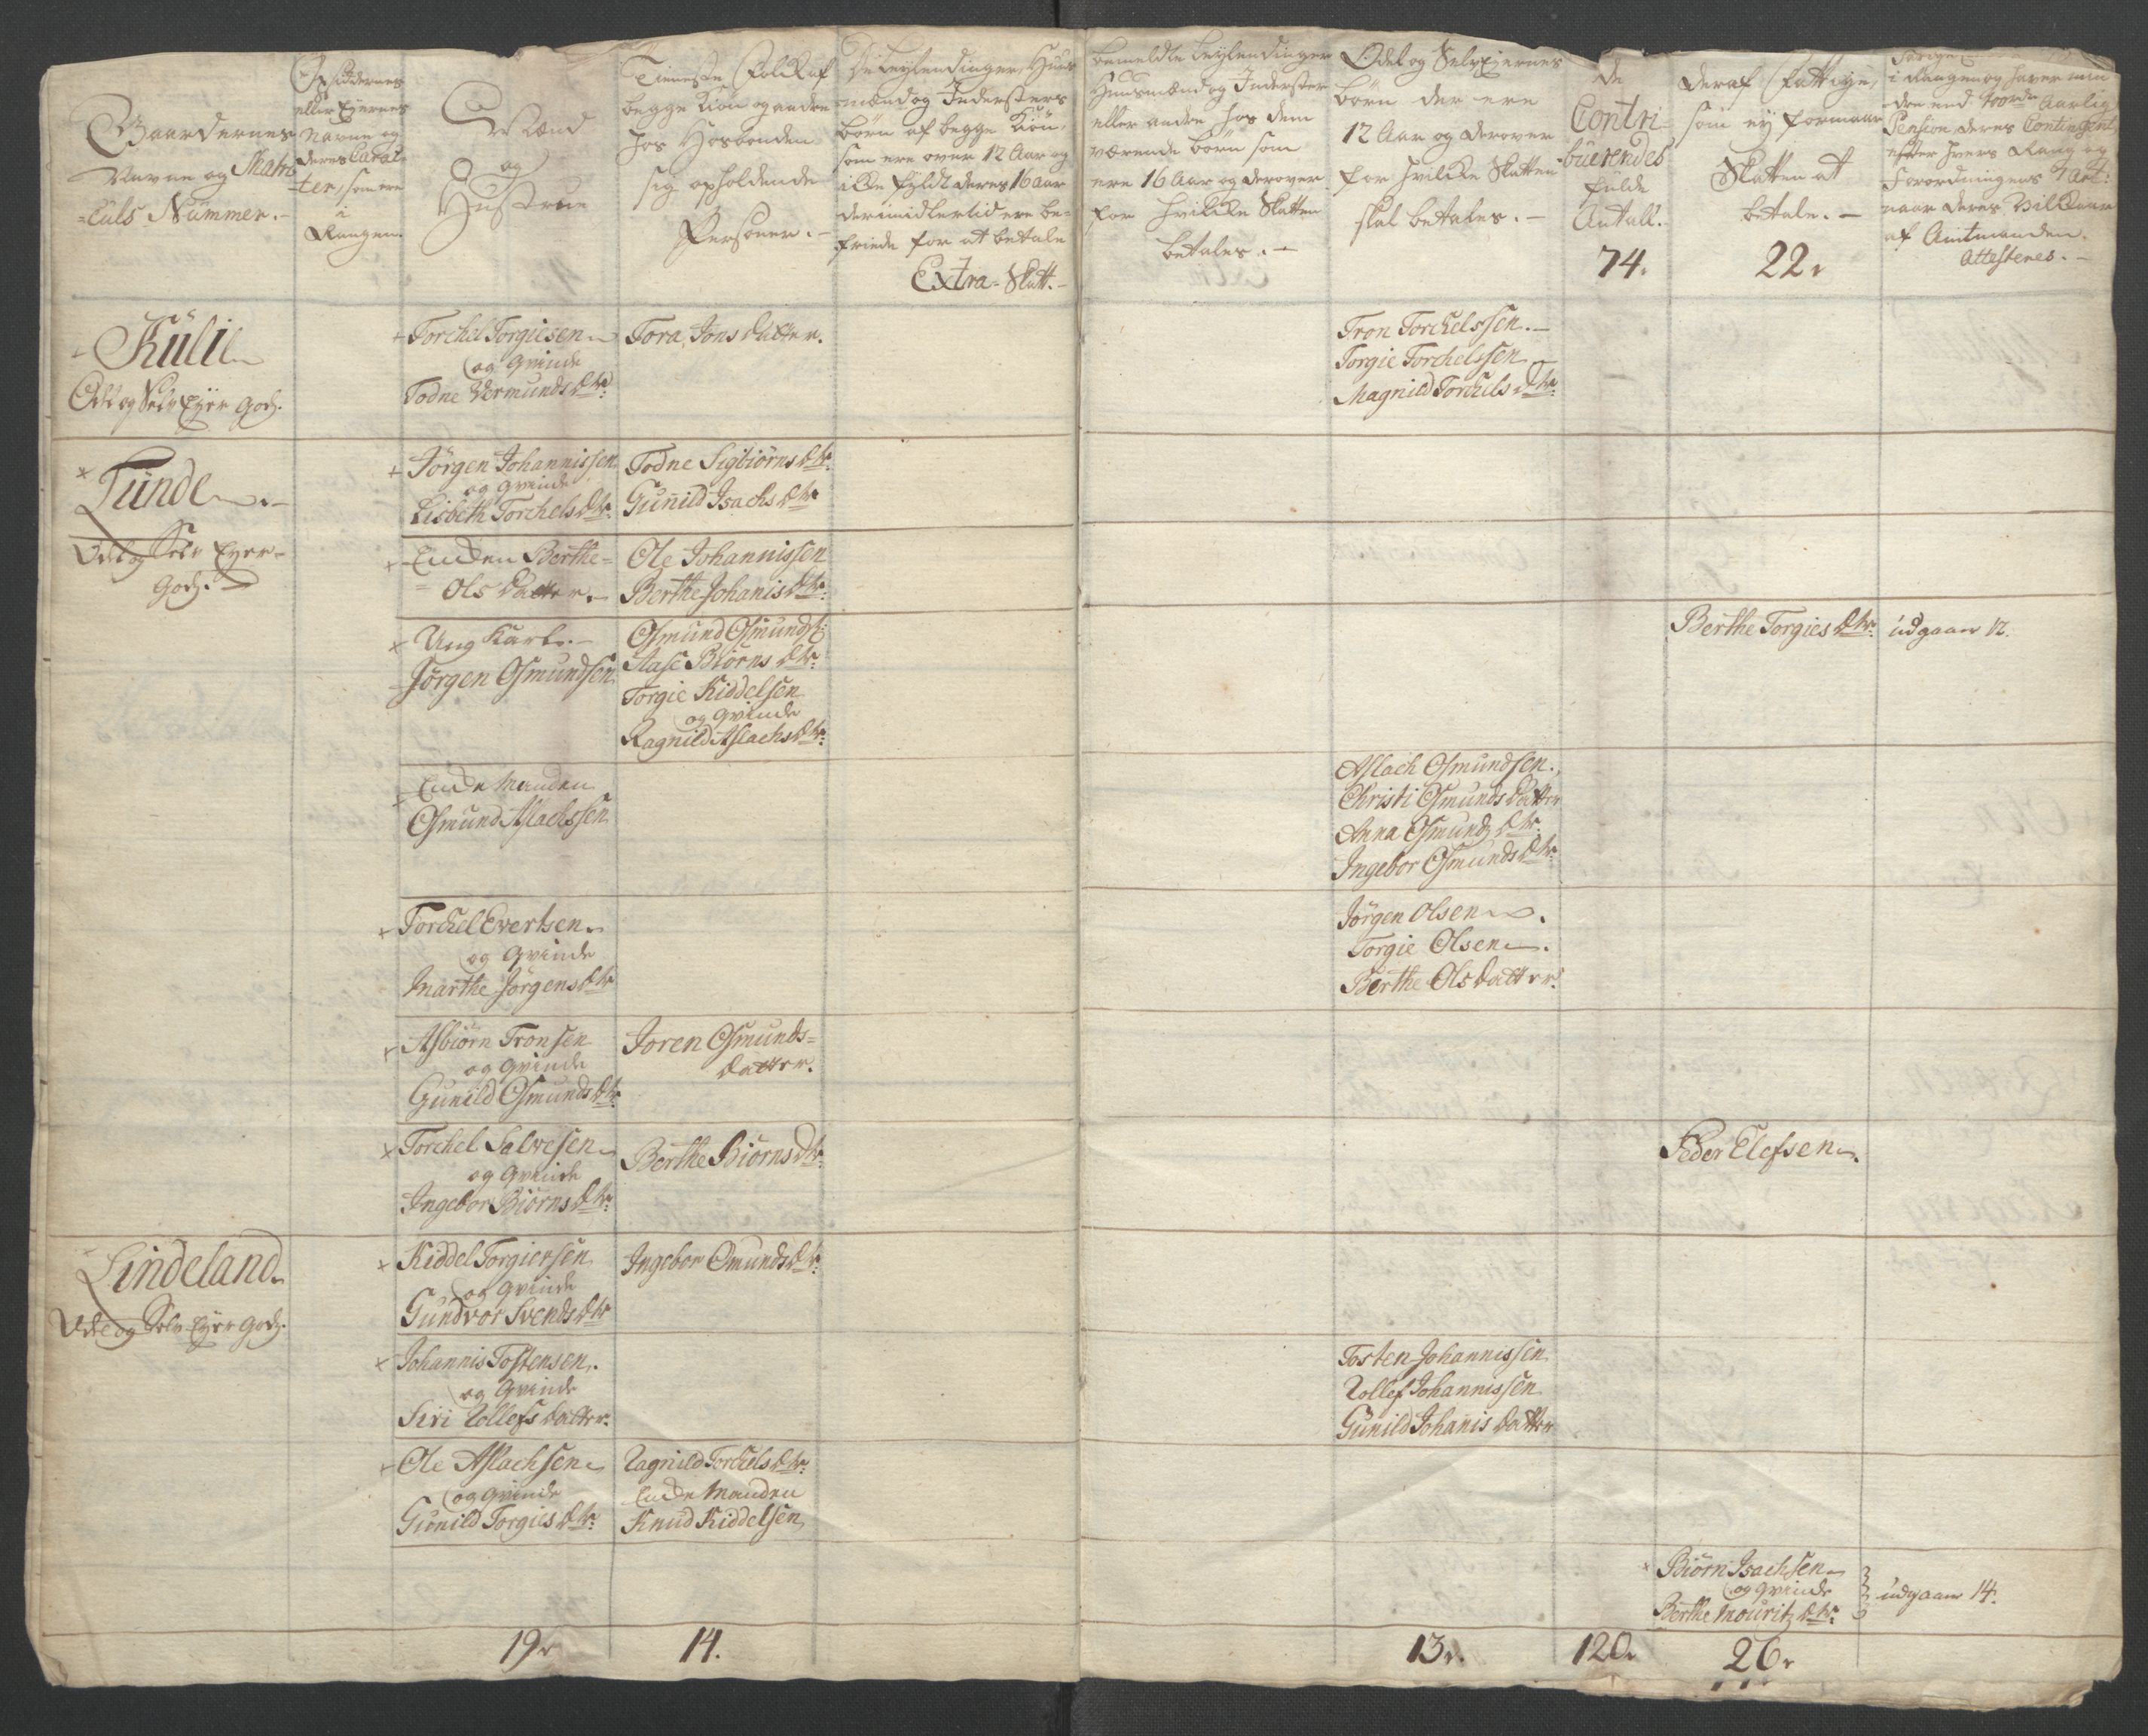 Gaardernes
Navne og Matri
=culs Nummer.-
Opsiddernes
eller Eyernes
Navne og
deres Carac-
ter, som ere
i
Rangen.
Mænd
og
Hustrue
Tieneste Folck af
begge Kiøn og andre
hos Hosbonden
sig opholdende
Personer.-
De Leylendinger, Huus
mænd og Indersters
börn af begge Kiön,
som ere over 12 Aar og
icke fyldt deres 16 aar
der imidlertid ere be-
friede for at betale
Extra-Skatt.-
bemeldte Leylendinger
Huusmænd og Inderster
eller andre hos dem
værende börn som
ere 16 Aar og derover
for hvilcke Skatten
betales.-
Odel og Selveyernes
börn der ere
12 Aar og derover
for hvilcke Skatten
skal betales.-
de
Contri-
buerendes
fulde
Antall.
74.
deraf Fattige,
som ey formaar
Skatten at
betale.-
22.
i Rangen og haver min
dre end Aarlig
Pension deres Contingent
efter hvers Rang og
Forordningens Art:
naar deres Vilckaar
af Amtmanden
Attesteres.-
Kulie
Odel og Selv Eyer Gods.
+ Torchel Torgiesen
og Qvinde
Todne Vermunds Dtr:
Tora Jons Datter.
Tron Torchelssen.-
Torgie Torchelssen
Magnild Torchels Dtr:
Lunde.-
Odel og Selv Eyer-
Gods.
+ Jörgen Johannissen
og Qvinde
Lisbeth Torchels Dtr.
Todne Sigbiörns Dtr.
Gunild Isachs Dtr
+ Encken Berthe=
= Ols Datter.-
Ole Johannissen
Berthe Johanis Dtr:
+ Ung Karl.-
Jörgen Osmundsen
Osmund Osmunds:
Aase Biörns Dtr:
Torgie Kiddelsen
og Qvinde
Ragnild Aslachs Dtr:
Berthe Torgies Dtr: udgaar 12.
+ Encke Manden
Osmund Aslachssen
Aslach Osmundsen.
Christi Osmunds Datter
Anna Osmunds Dtr.
Ingebor Osmunds Dtr:
+ Torchel Evertsen
og Qvinde
Marthe Jörgens Dtr
Jörgen Olsen.
Torgie Olsen.
Berthe Ols Datter.
+ Asbiörn Tronsen
og Qvinde
Gunild Osmunds Dtr.
Joren Osmunds=
Datter.
+ Torchel Salvesen
og Qvinde
Ingebor Biörns Dtr.
Berthe Biörns Dtr.
Peder Elefsen.
Lindeland
Odel og Selv Eyer Gods.
+ Kiddel Torgiersen
og Qvinde
Gundvor Svends Dtr
Ingebor Omunds Dtr.
+ Johannis Tostensen.
og Qvinde
Siri Rollefs Datter.
Tosten Johannissen
Rollef Johannissen
Gunild Johanis Datter
+ Ole Aslachsen
og Qvinde
Gunild Torgies Dtr:
Ragnild Torchels Dtr.
Encke Manden
Knud Kiddelsen
+ Biörn Isachsen
og Qvinde
Berthe Mouritz Dtr.
udgaar 14.
19.
14.
13.
120.
26.